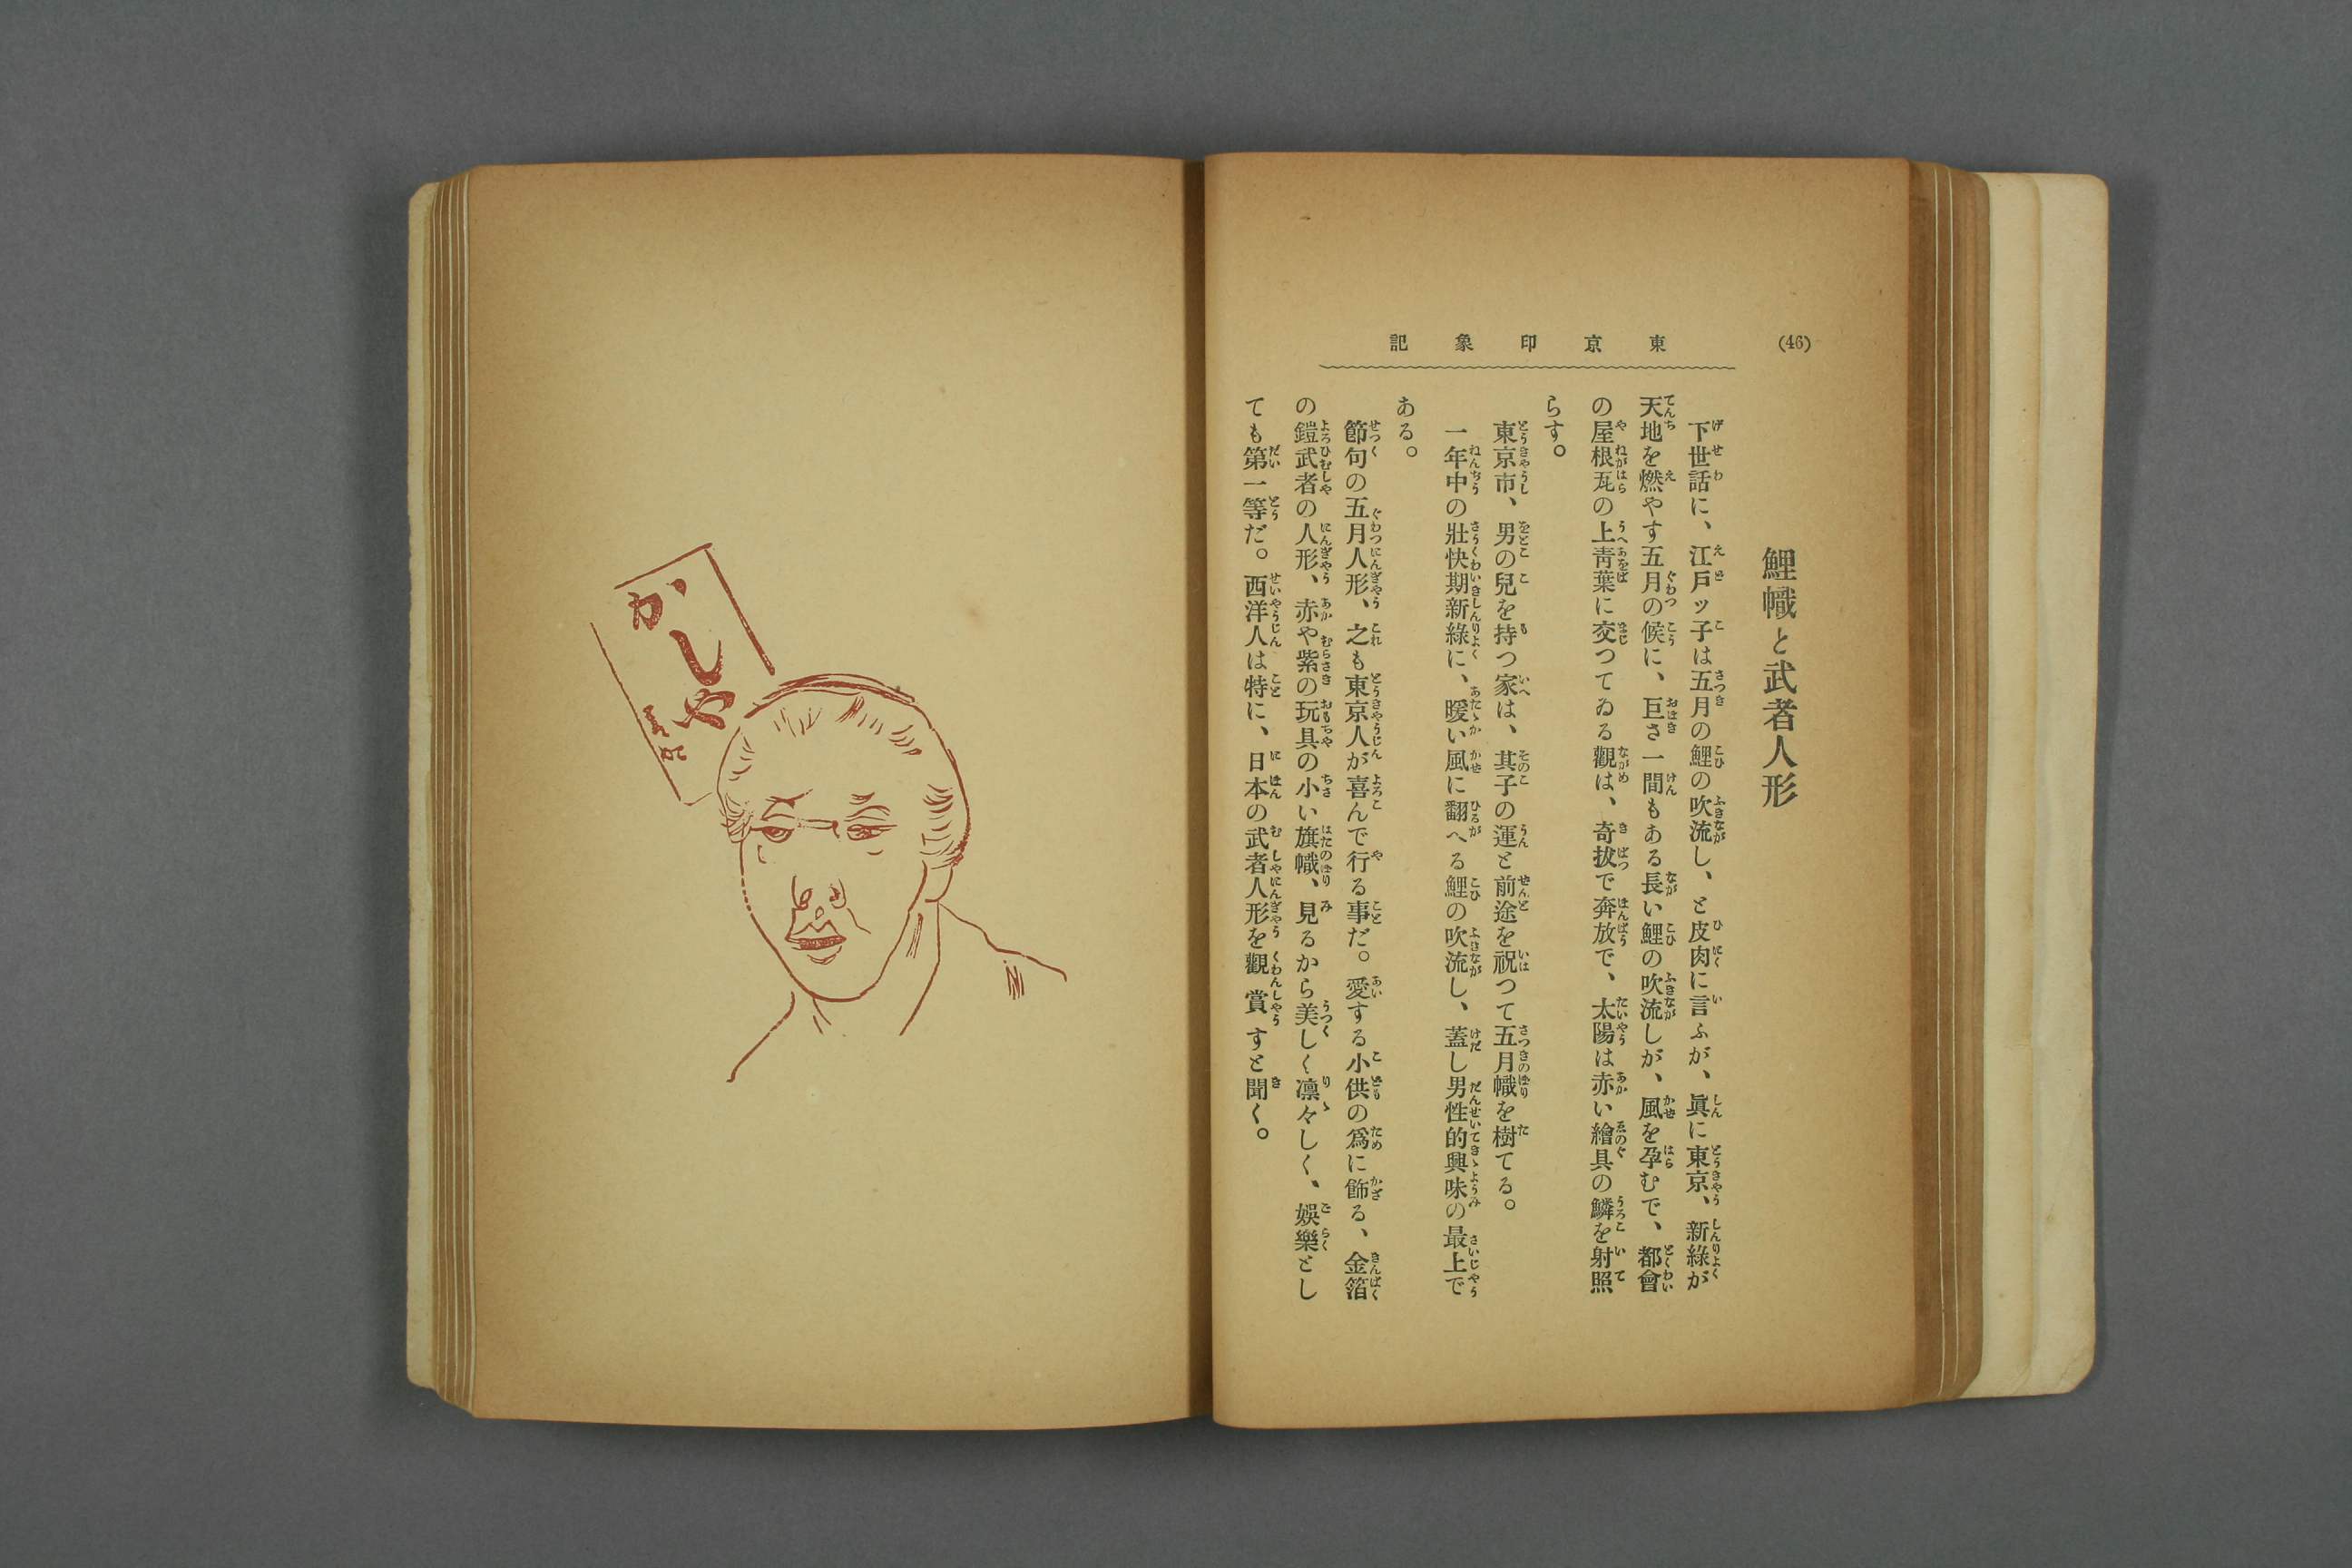 (46)
東京印象記
鯉幟と武者人形
下世話に、江戸ッ子は五月の鯉の吹流し、と皮肉に言ふが、眞に東京、新綠が
天地を燃やす五月の候に、巨さ一間もある長い鯉の吹流しが、風を孕むで、都會
の屋根瓦の上靑葉に交つてゐる觀は、奇拔で奔放で、太陽は赤い繪具の鱗を射照
らす。
東京市、男の兒を持つ家は、其子の運と前途を祝つて五月幟を樹てる。
一年中の壯快期新綠に、暖い風に翻へる鯉の吹流し、蓋し男性的興味の最上で
ある。
節句の五月人形、之も東京人が喜んで行る事だ。愛する小供の爲に飾る、金箔
の鎧武者の人形、赤や紫の玩具の小い旗幟、見るから美しく凛々しく、娯樂とし
ても第一等だ。西洋人は特に、日本の武者人形を觀賞すと聞く。
かしや